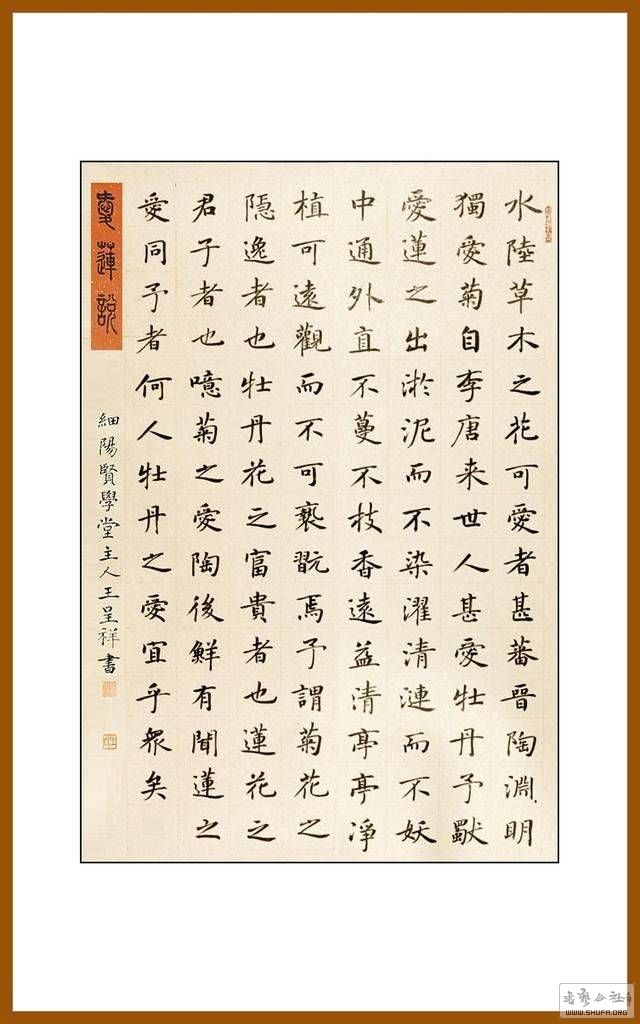 水陸草木之花可愛者甚蕃晉陶淵明
獨愛菊自李唐来世人甚愛牡丹予獨
愛蓮之出淤泥而不染濯清漣而不妖
中通外直不蔓不枝香遠益清亭亭淨
植可遠觀而不可褻翫焉予謂菊花之
隱逸者也牡丹花之富貴者也蓮花之
君子者也噫菊之愛陶後鮮有聞蓮之
愛同予者何人牡丹之愛宜乎眾矣
愛蓮說
細陽賢學堂主人王呈祥書
書藝公社
WWW.SHUFA.ORG